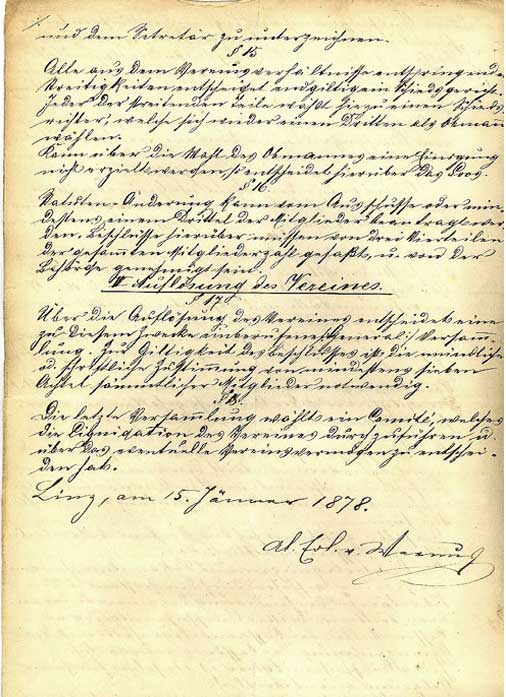 und dem Sekretär zu unterzeichnen.
§ 15
Alle aus dem Vereinsverhältnisse entspringenden
Streitigkeiten entscheidet endgiltig ein Schiedsgericht.
Jeder der streitenden Teile wählt hiezu einen Schieds-
richter, welche sich wieder einen Dritten als Obmann
wählen.
Kann über die Wahl des Obmannes eine Einigung
nicht erzielt werden, so entscheidet hierüber das Loos.
§ 16.
Statuten-Änderung kann vom Ausschusse oder min-
destens einem Drittel der Mitglieder beantragt wer-
den. Beschlüsse hierüber müssen von drei Vierteilen
der gesammten Mitgliederzahl gefaßt, u. von der
Behörde genehmigt sein.
V Auflösung des Vereines.
§ 17
Über die Auflösung des Vereines entscheidet eine
zu diesem Zwecke einberufene General-Versam-
lung. Zur Giltigkeit des Beschlusses ist die mündliche
od. schriftliche Zustimmung von mindestens sieben
Achtel sämmtlicher Mitglieder notwendig.
§ 18.
Die letzte Versammlung wählt ein Comité, welches
die Liquidation des Vereines durchzuführen u.
über das eventuelle Vereinsvermögen zu entschei-
den hat.
Linz, am 15. Jänner 1878.
v.